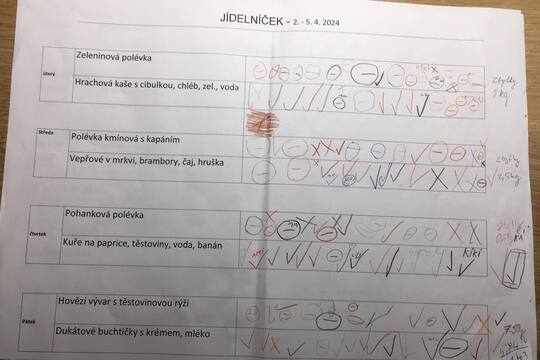 JÍDELNÍČEK – 2. - 5. 4. 2024
úterý
Zeleninová polévka
Hrachová kaše s cibulkou, chléb, zel., voda
zbytky
2 kg
Středa
Polévka kmínová s kapáním
Vepřové v mrkvi, brambory, čaj, hruška
zbytky
2,5 kg
čtvrtek
Pohanková polévka
Kuře na paprice, těstoviny, voda, banán
Kiki
Pátek
Hovězí vývar s těstovinovou rýží
Dukátové buchtičky s krémem, mléko